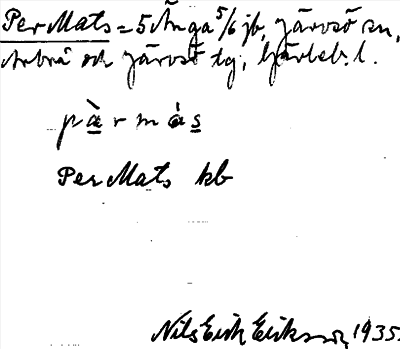 Per Mats = 5 Änga 5/6 jb, Järvsö sn,
Arbrå och Järvsö tg, Gävleb. l.
pæ̀r màs
Per Mats kb
Nils Erik Eriksson 1935.